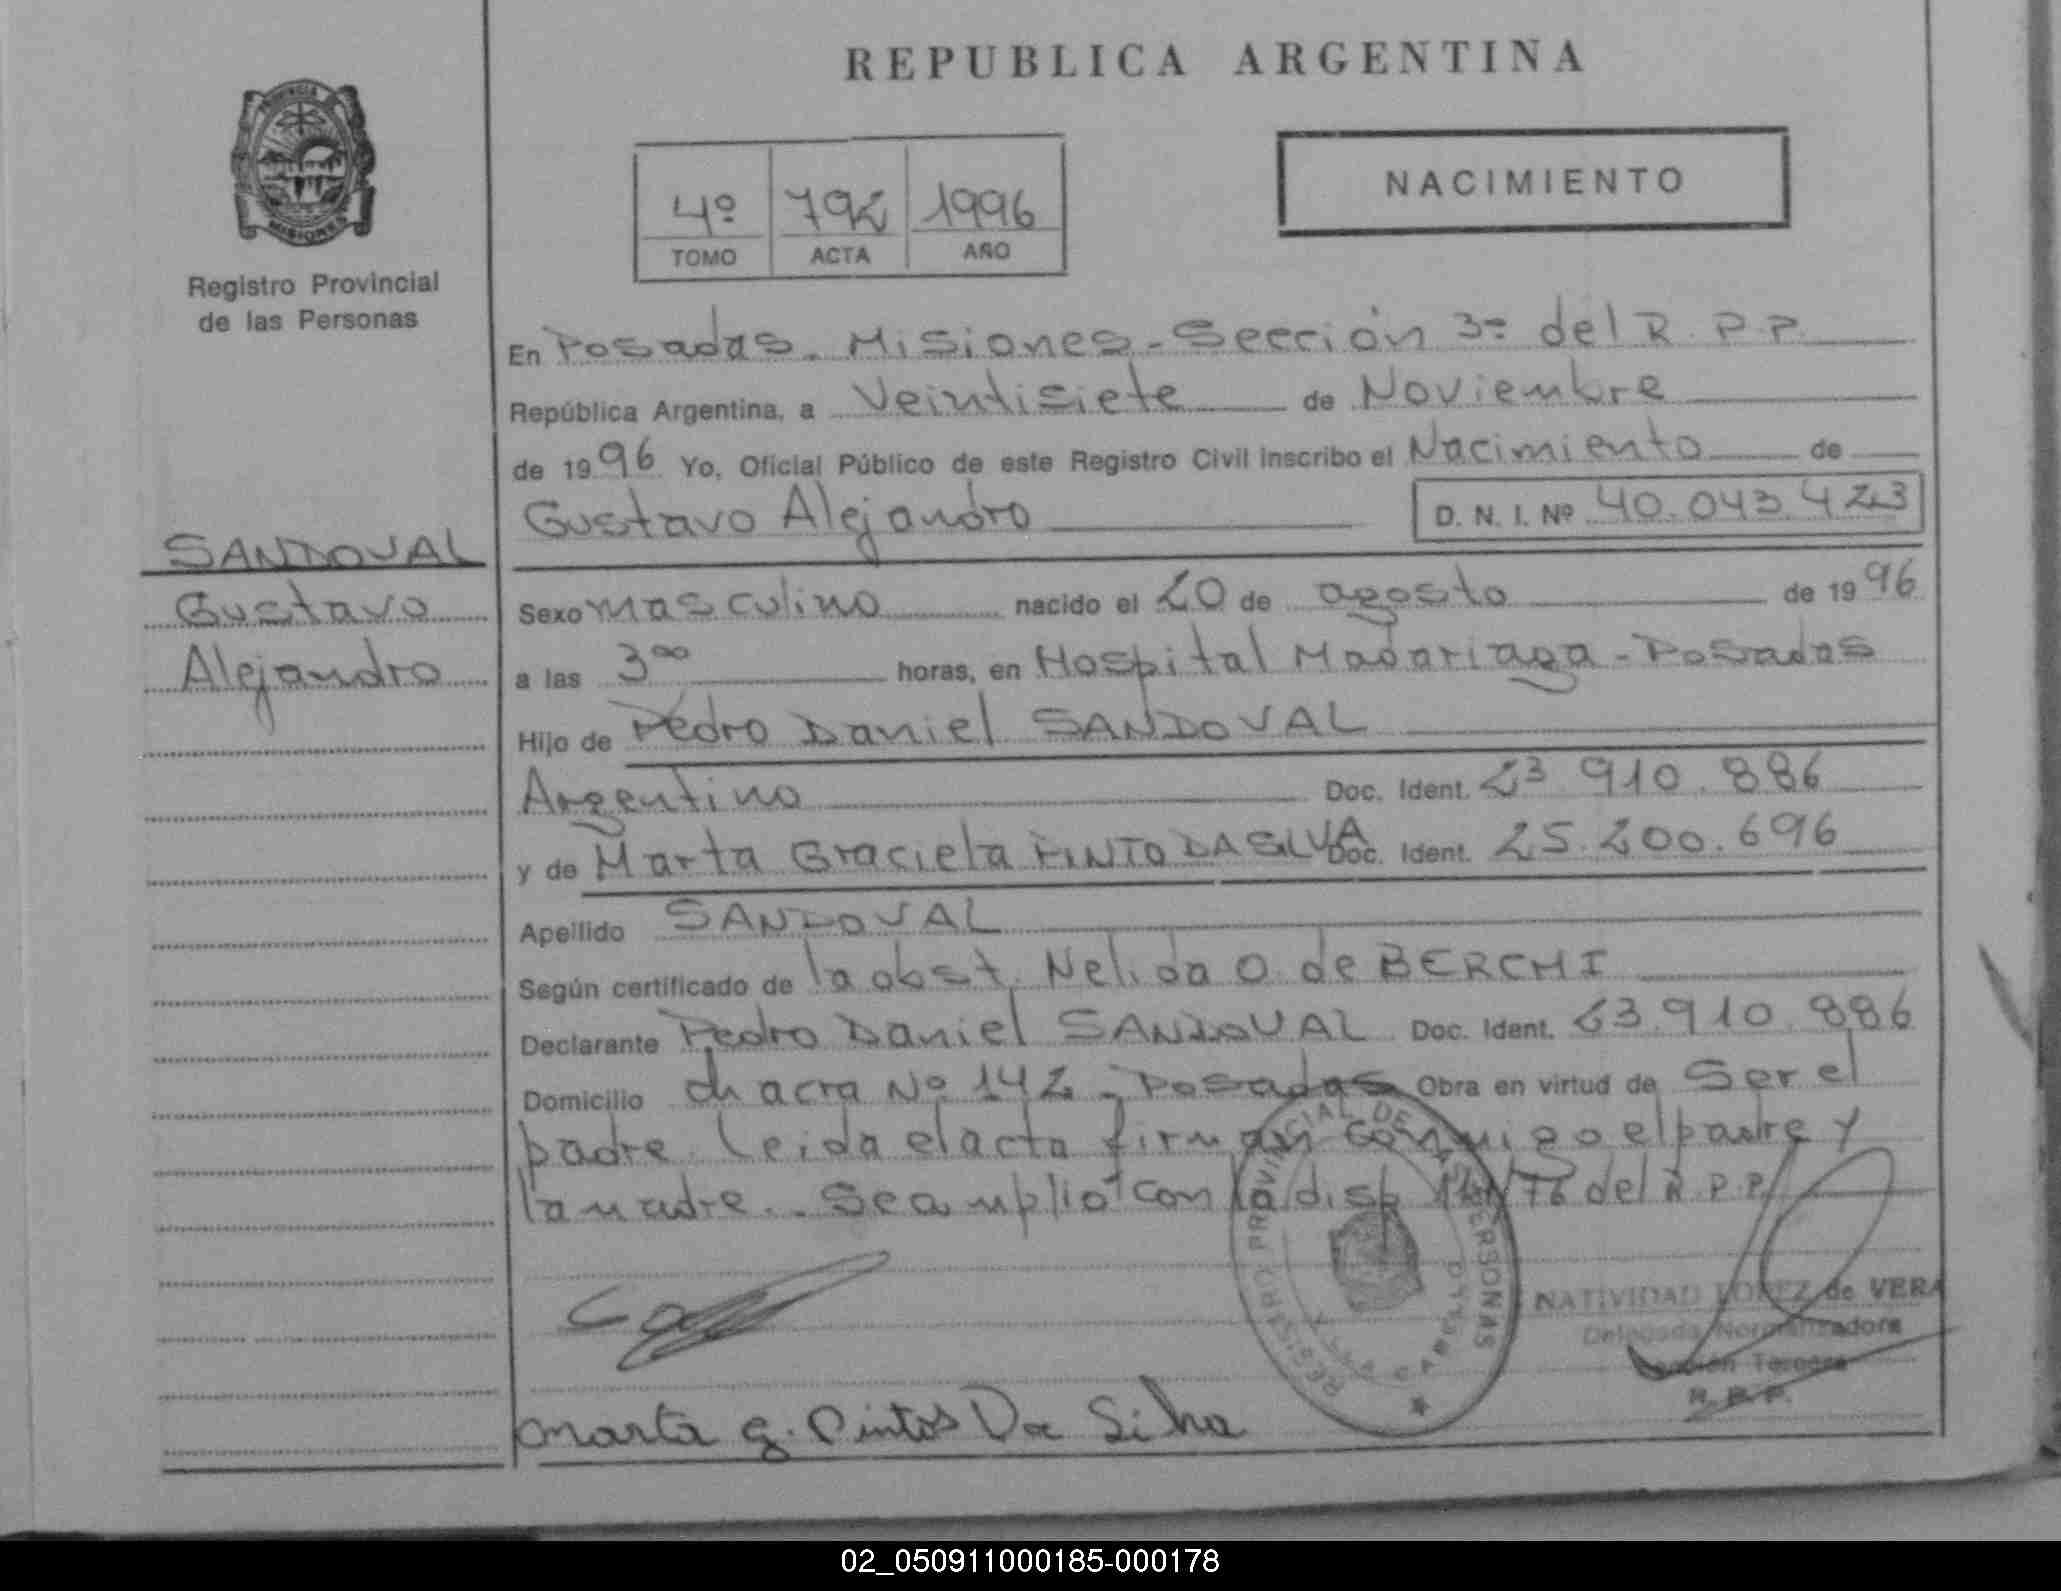 REPUBLICA ARGENTINA
PROVINCIA DE
MISIONES
Registro Provincial
de las Personas
4º 792 1996
TOMO ACTA AÑO
NACIMIENTO
En Posadas. Misiones - Sección 3ª del R. P. P.
República Argentina, a Veintisiete de Noviembre
de 1996 Yo, Oficial Público de este Registro Civil inscribo el Nacimiento de
Gustavo Alejandro D. N. I. Nº 40.043.423
SANDOVAL
Gustavo
Alejandro
Sexo masculino nacido el 20 de agosto de 1996
a las 3 00 horas, en Hospital Madariaga - Posadas
Hijo de Pedro Daniel SANDOVAL
Argentino Doc. Ident. 23.910.886
y de Marta Graciela PINTO DA SILVA Doc. Ident. 25.200.696
Apellido SANDOVAL
Según certificado de la obst. Nelida O. de BERCHI
Declarante Pedro Daniel SANDOVAL Doc. Ident. 23.910.886
Domicilio chacra Nº 142 - Posadas Obra en virtud de Ser el
padre. Leida el acta firman conmigo el padre y
la madre. - Se amplió con la disp. /76 del R. P. P.
REGISTRO PROVINCIAL DE LAS PERSONAS
NATIVIDAD LOPEZ de VERA
Delegada Normalizadora
Sección Tercera
R. P. P.
Marta G. Pintos Da Silva
02_050911000185-000178